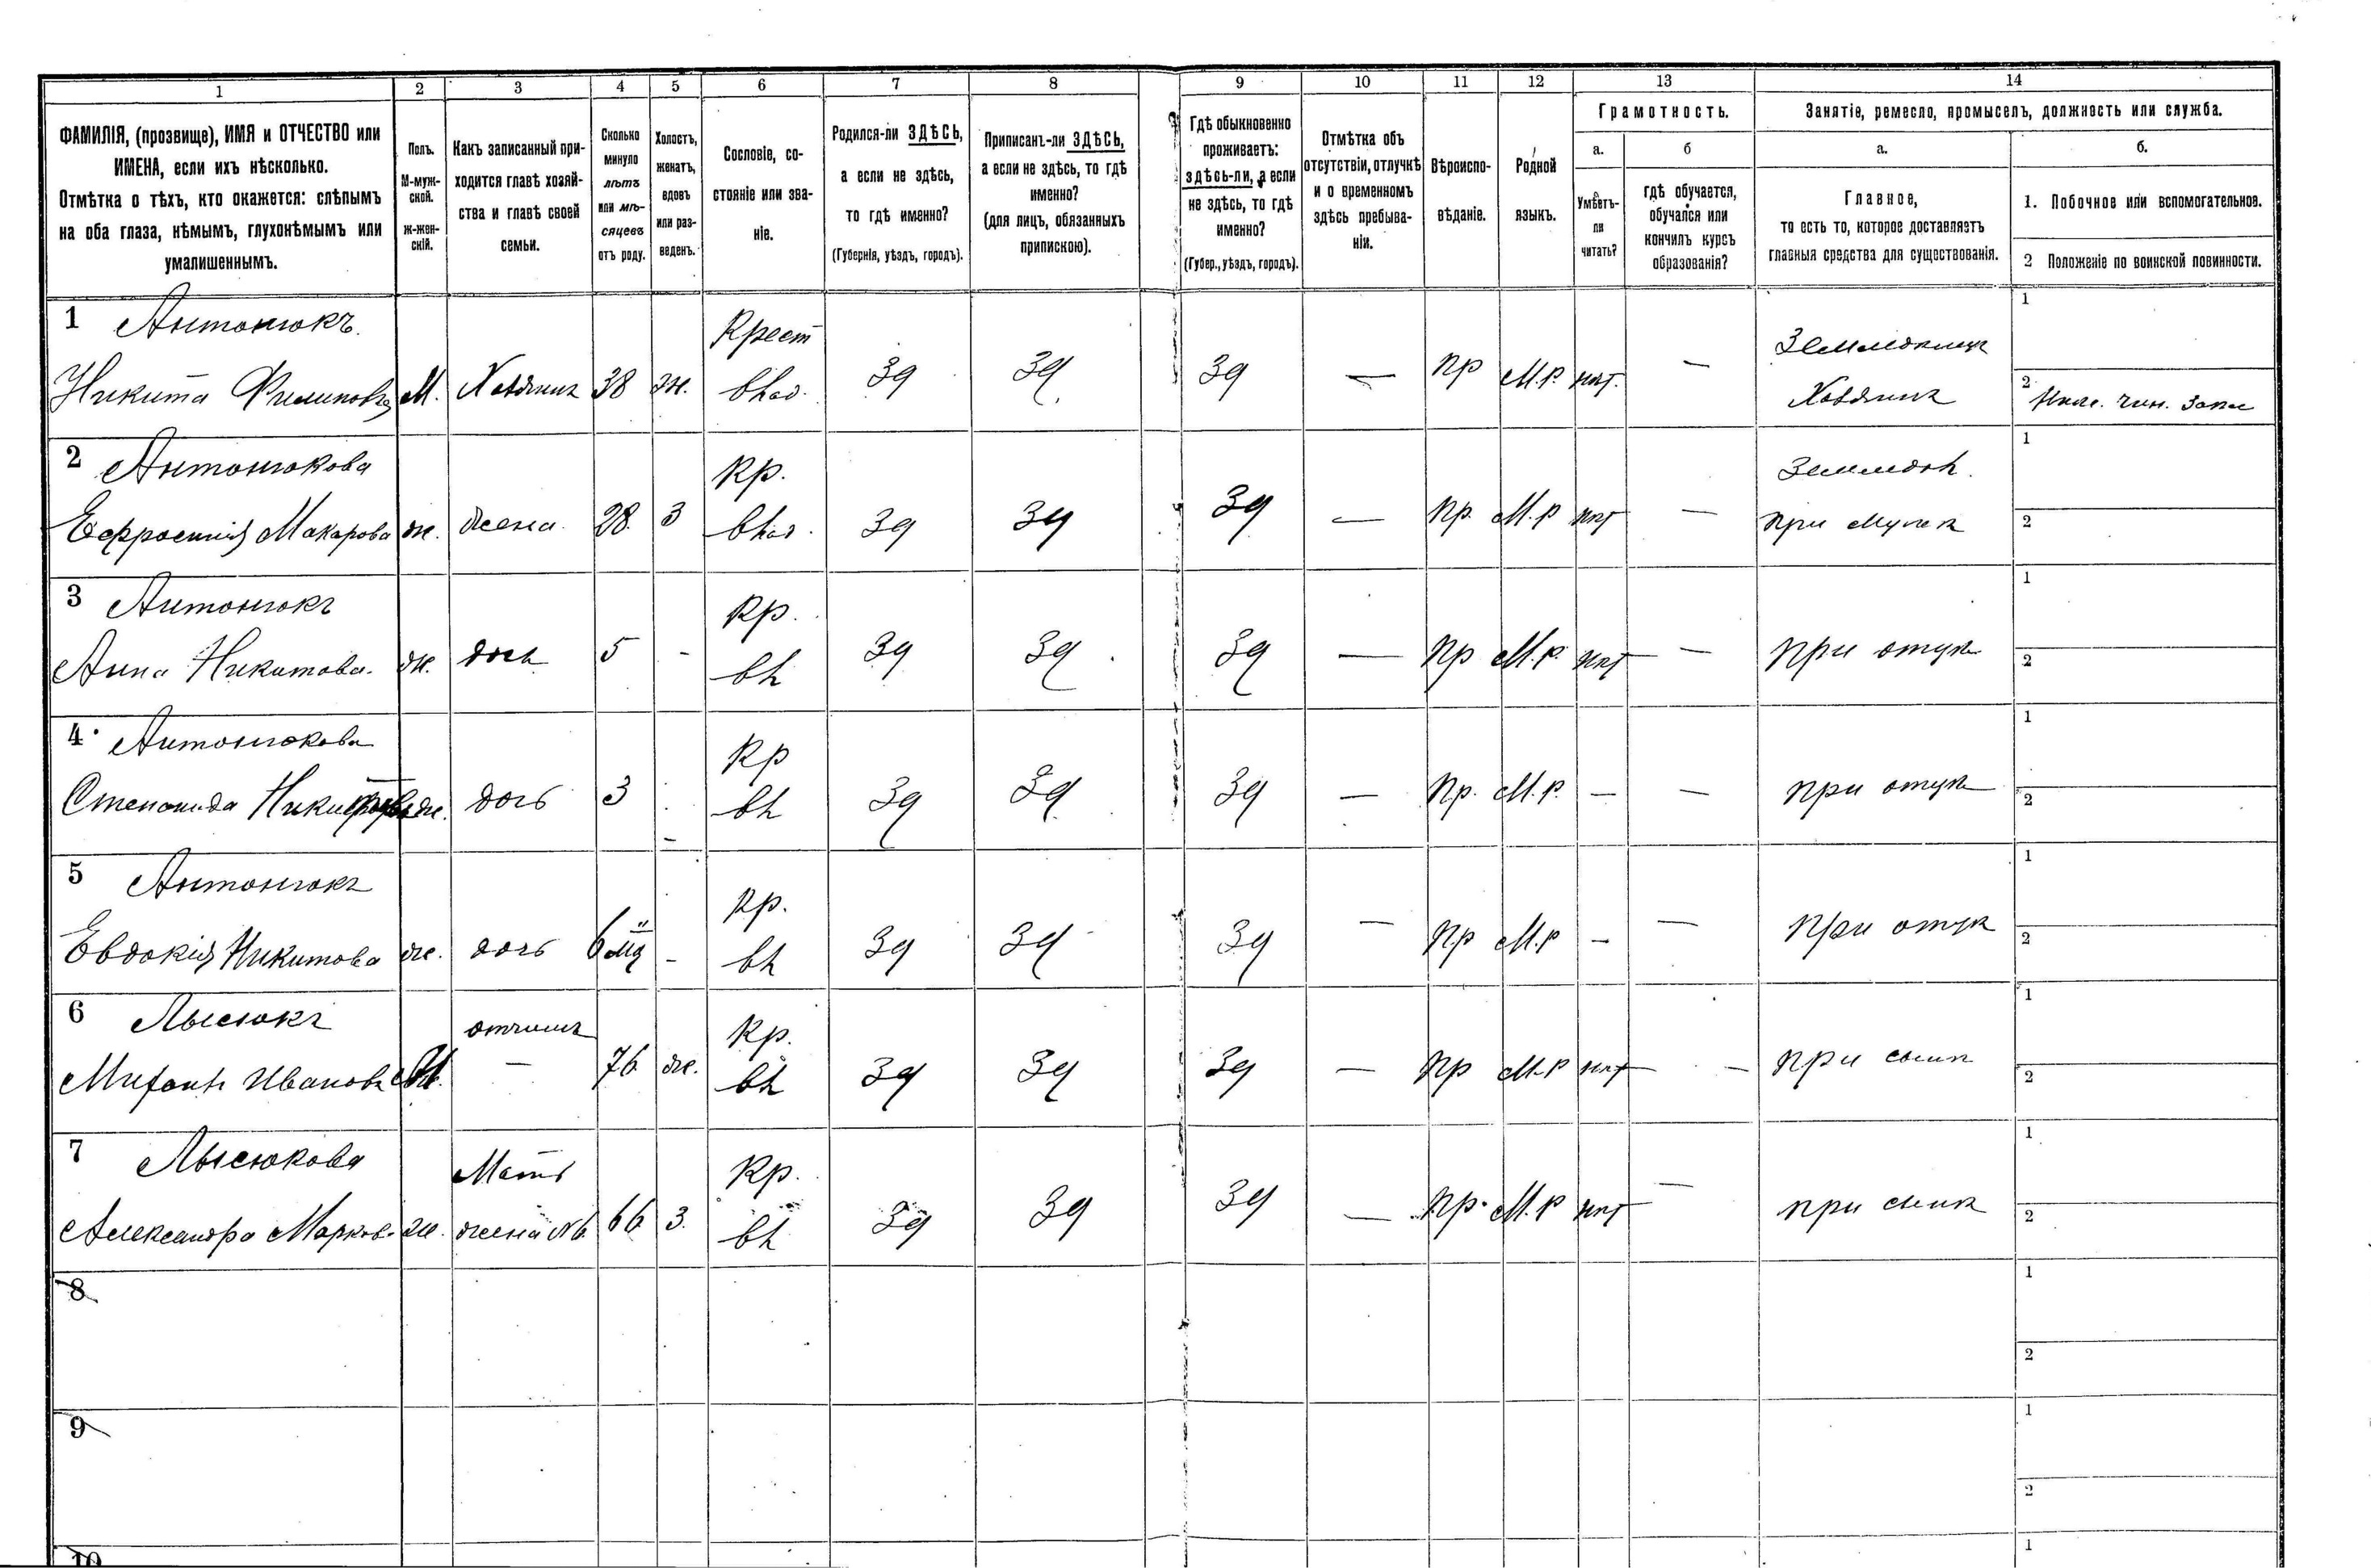 1
2
3
4
5
6
7
8
9
10
11
12
13
14
ФАМИЛІЯ, (прозвище), ИМЯ и ОТЧЕСТВО или
ИМЕНА, если ихъ нѣсколько.
Отмѣтка о тѣхъ, кто окажется: слѣпымъ
на оба глаза, нѣмымъ, глухонѣмымъ или
умалишеннымъ.
Полъ.
М-муж-
ской.
Ж-жен-
скій.
Какъ записанный при-
ходится главѣ хозяй-
ства и главѣ своей
семьи.
Сколько
минуло
лѣтъ
или мѣ-
сяцевъ
отъ роду.
Холостъ,
женатъ,
вдовъ
или раз-
веденъ.
Сословіе, со-
стояніе или зва-
ніе.
Родился-ли ЗДѢСЬ,
а если не здѣсь,
то гдѣ именно?
(Губернія, уѣздъ, городъ).
Приписанъ-ли ЗДѢСЬ,
а если не здѣсь, то гдѣ
именно?
(для лицъ, обязанныхъ
припискою).
Гдѣ обыкновенно
проживаетъ:
здѣсь-ли, а если
не здѣсь, то гдѣ
именно?
(Губер., уѣздъ, городъ).
Отмѣтка объ
отсутствіи, отлучкѣ
и о временномъ
здѣсь пребыва-
ніи.
Вѣроиспо-
вѣданіе.
Родной
языкъ.
Грамотность.
а.
Умѣетъ-
ли
читать?
б
гдѣ обучается,
обучался или
кончилъ курсъ
образованія?
Занятіе, ремесло, промыселъ, должность или служба.
а.
Главное,
то есть то, которое доставляетъ
главныя средства для существованія.
б.
1. Побочное или вспомогательное.
2 Положеніе по воинской повинности.
1 Антонюкъ
Никита Филиповъ М. Хозяинъ 38 ж.
Крест
влад.
зд зд зд — пр М.р. нѣт. —
Хозяинъ
1
2 Ниж. чин. запас
2 Антонюкова
Ефросинія Макарова ж. жена 28. з
Кр.
влад.
зд зд зд — пр. М.р нѣт —
Земледѣл.
при мужѣ
1
2
3 Антонюкъ
Анна Никитова. ж. дочь 5 -
Кр.
вл
зд зд. зд — пр М.р. нѣт —
при отцѣ
1
2
4 Антонюкова
Степанида ж. дочь 3
Кр
вл
зд зд зд — пр. М.р. — —
при отцѣ
1
2
5 Антонюкъ
Евдокія Никитова ж. дочь 6 -
Кр.
вл
зд зд зд — пр М.р — —
при отцѣ
1
2
6 Лысюкъ
отчимъ
Иванов М. — 76 ж.
Кр.
вл
зд зд зд — пр М.р нѣт —
при сынѣ
1
2
7 Лысюкова
Мать
Александра Марков. ж. жена №6 66 з.
Кр.
вл
зд зд зд — пр. М.р нѣт —
при сынѣ
1
2
8
1
2
9
1
2
10
1